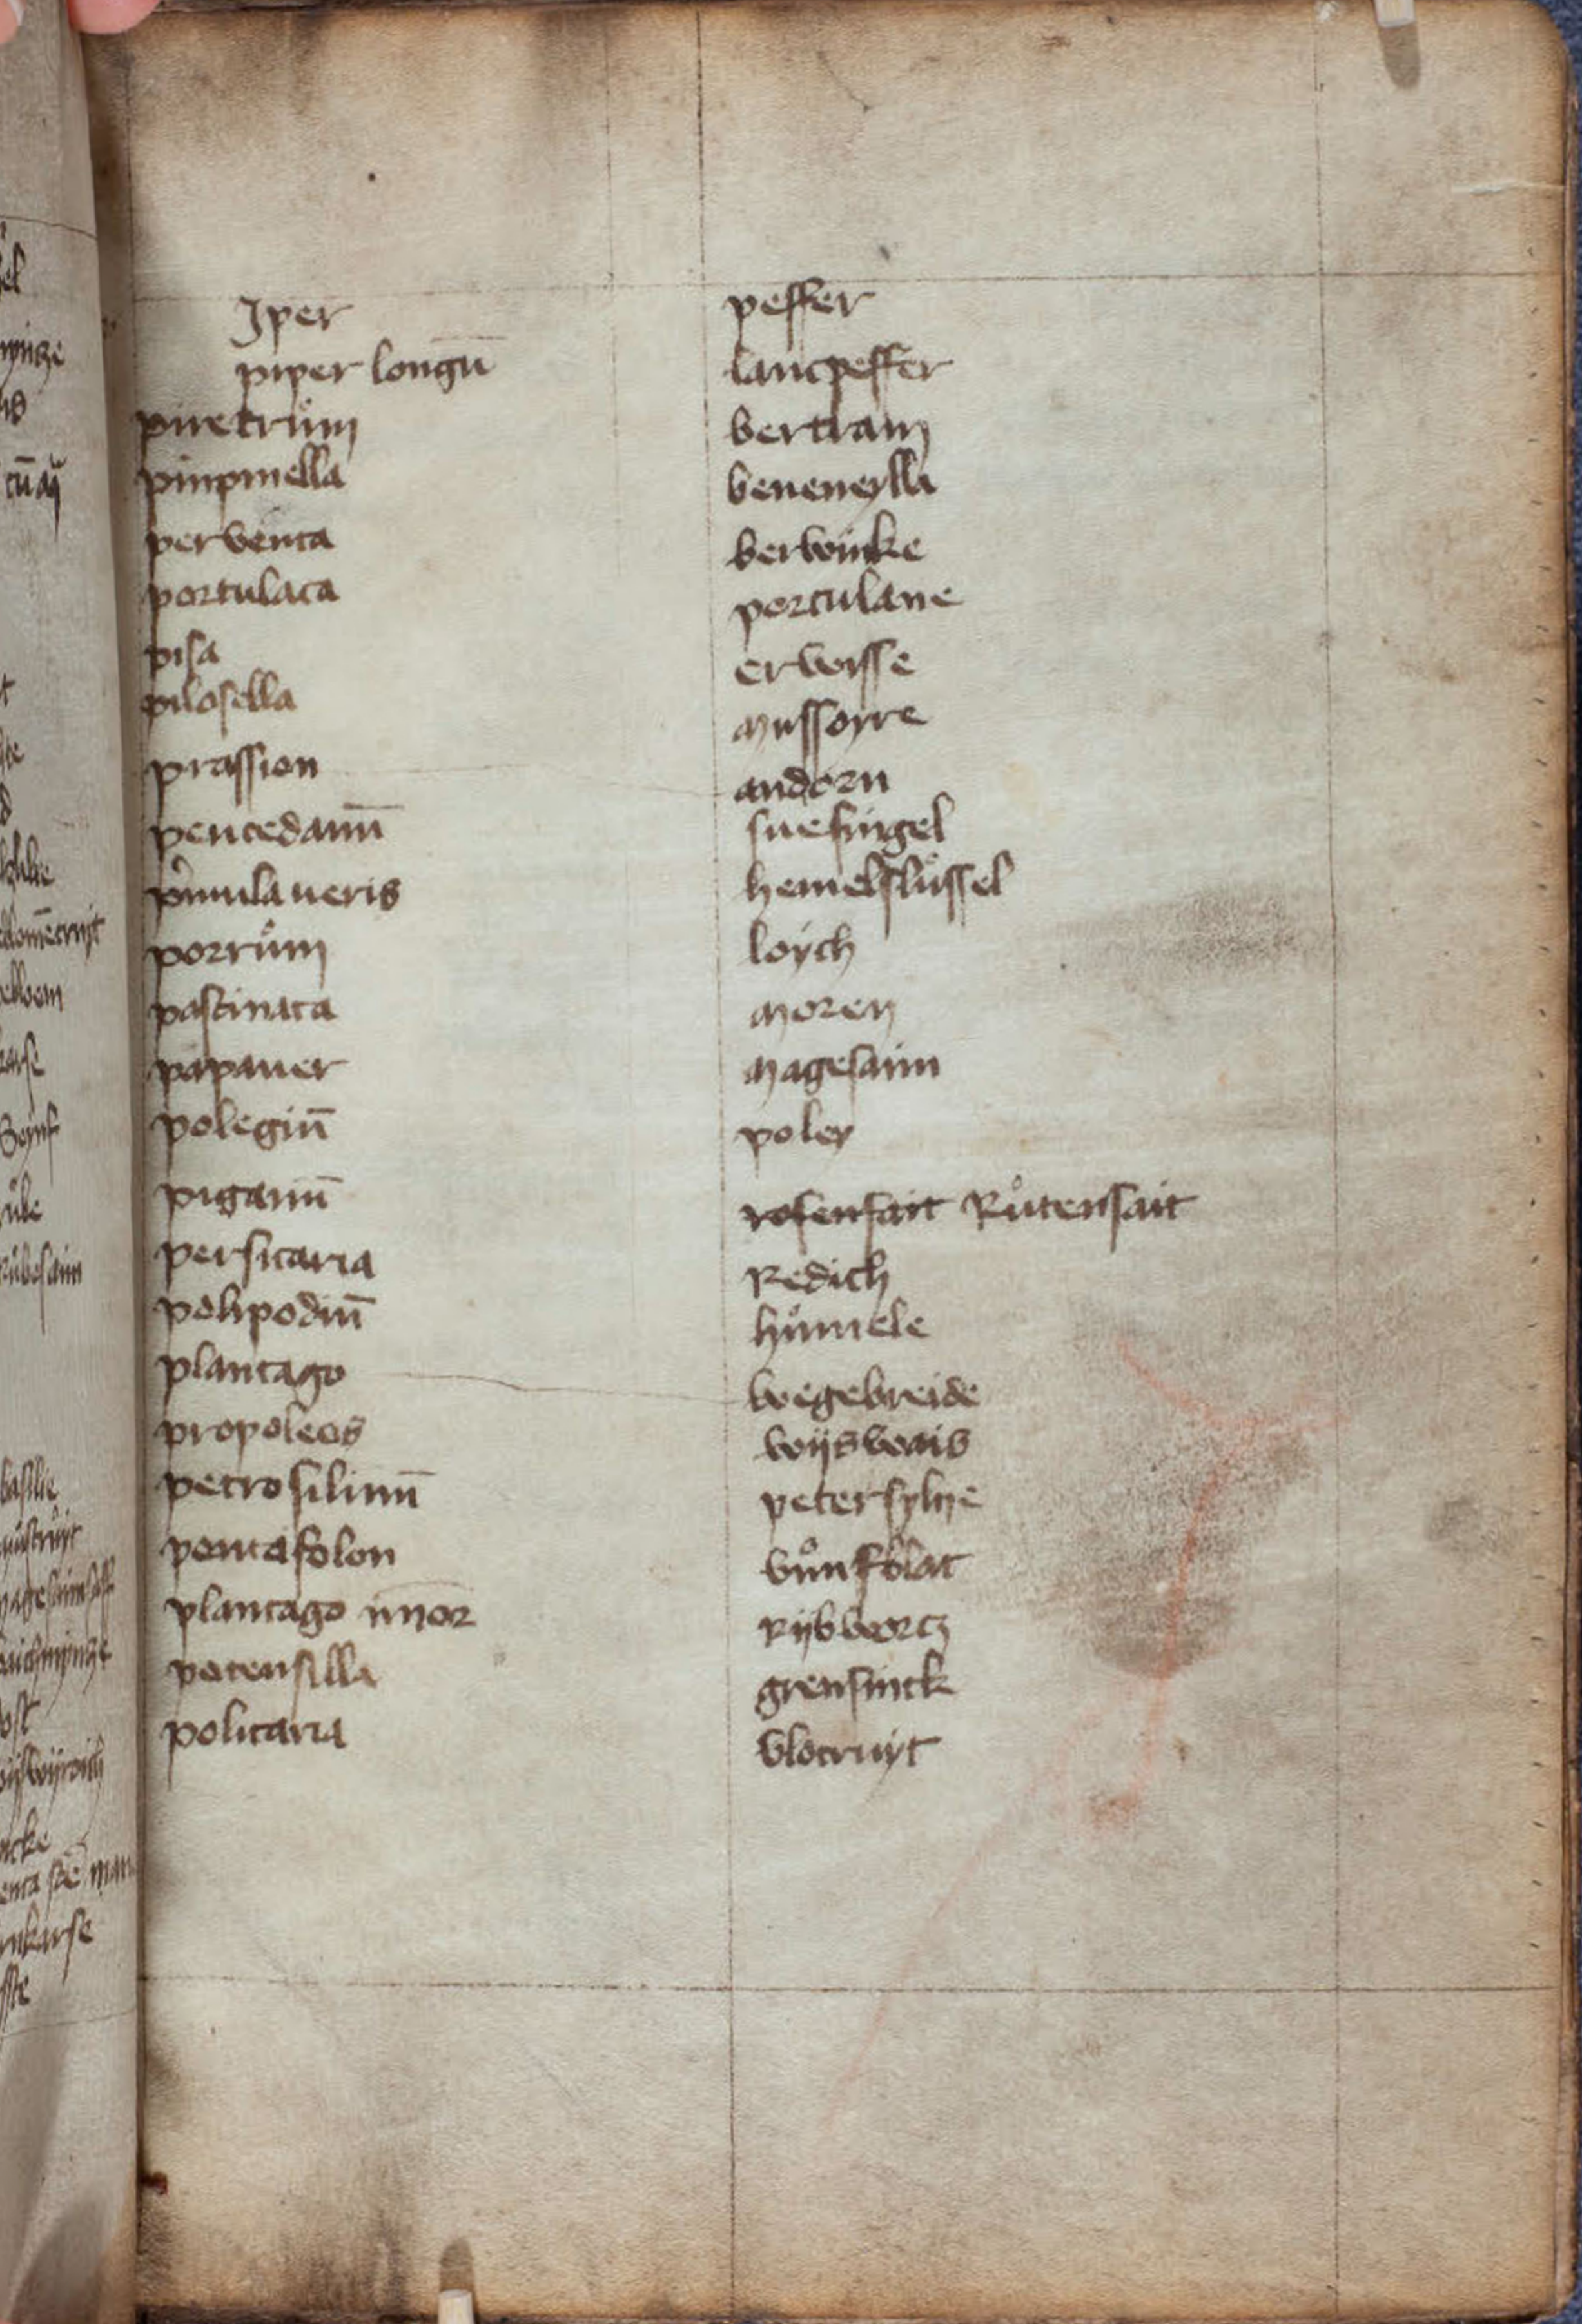 Jper peffer
piper longū lancpeffer
piretrům bertram
pinpinella beneneylla
perventa berwinke
portulaca portulane
pisa erwisse
pilosella mussoyre
prassion andorn
peucedanū suesingel
pͥmula ueris hemelslůssel
porrům loych
pastinaca moren
papauer magesaim
polegiū poley
piganū rosensait Růtensait
persicaria Redich
polipodiū hůmele
plantago wegebreide
propoleos wijswais
petrosilinū petersylye
pentafolon vůnfblat
plantago minor Rijbwortz
potensilla grensinck
policaria vlocruyt